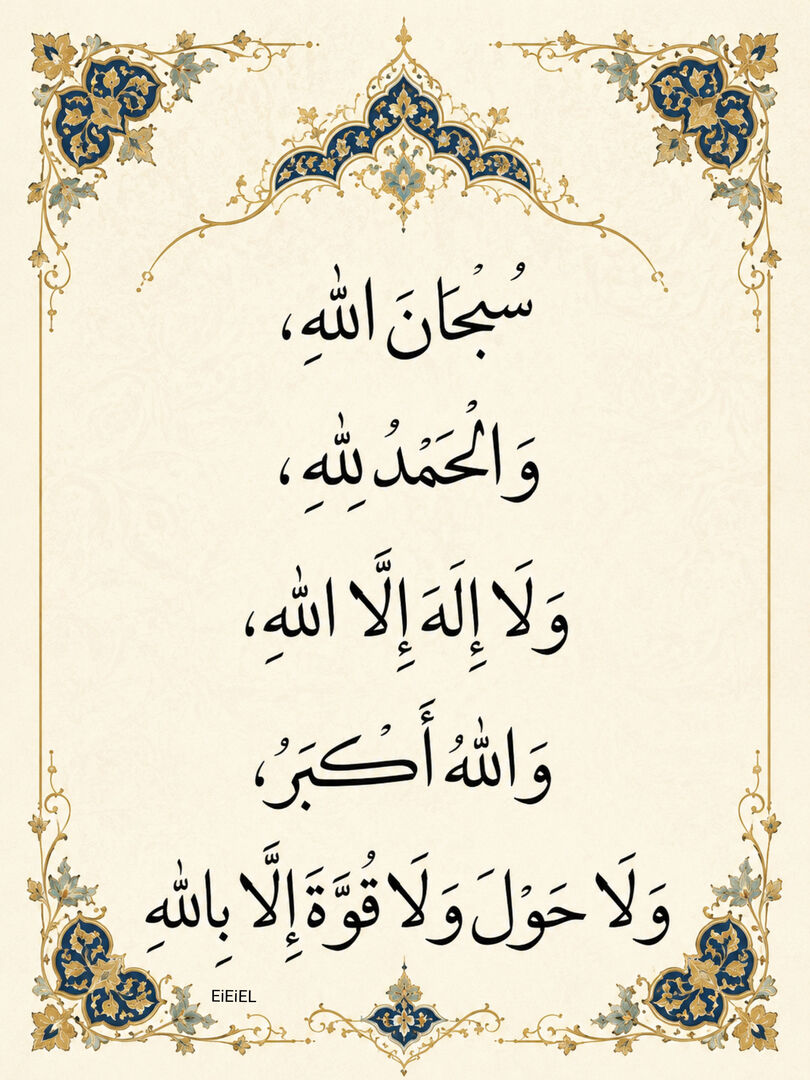 سُبْحَانَ اللّٰهِ،
وَالْحَمْدُ لِلّٰهِ،
وَلَا إِلَهَ إِلَّا اللّٰهِ،
وَاللّٰهُ أَكْبَرُ،
وَلَا حَوْلَ وَلَا قُوَّةَ إِلَّا بِاللّٰهِ
EiEiEL